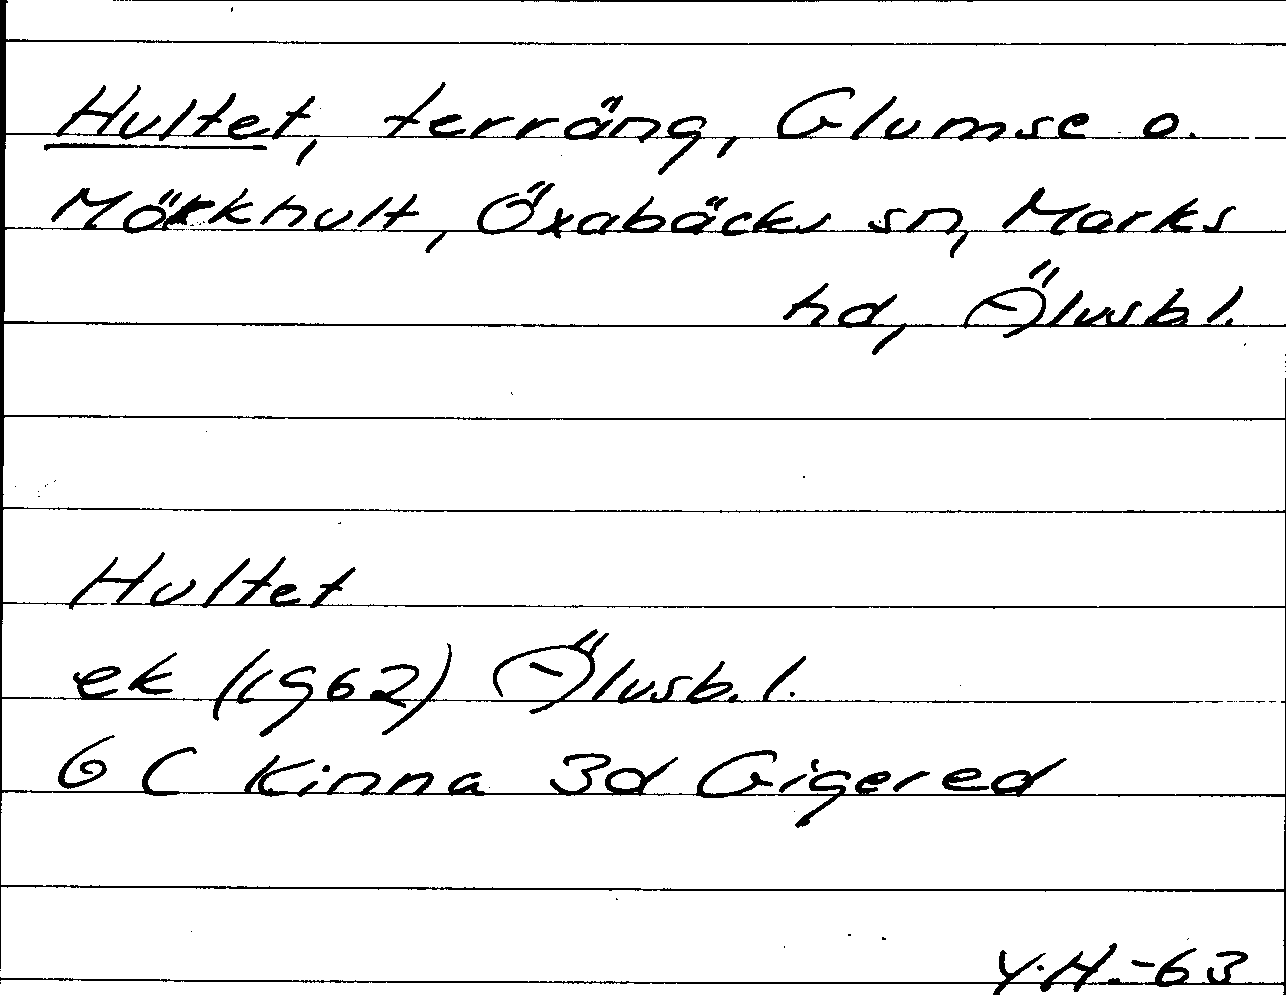 Hultet, terräng, Glumse o.
Mörkhult, Öxabäcks sn, Marks
hd, Älvsb.l.
Hultet
ek (1962) Älvsb.l.
6 C Kinna 3d Gigered
Y.H.-63